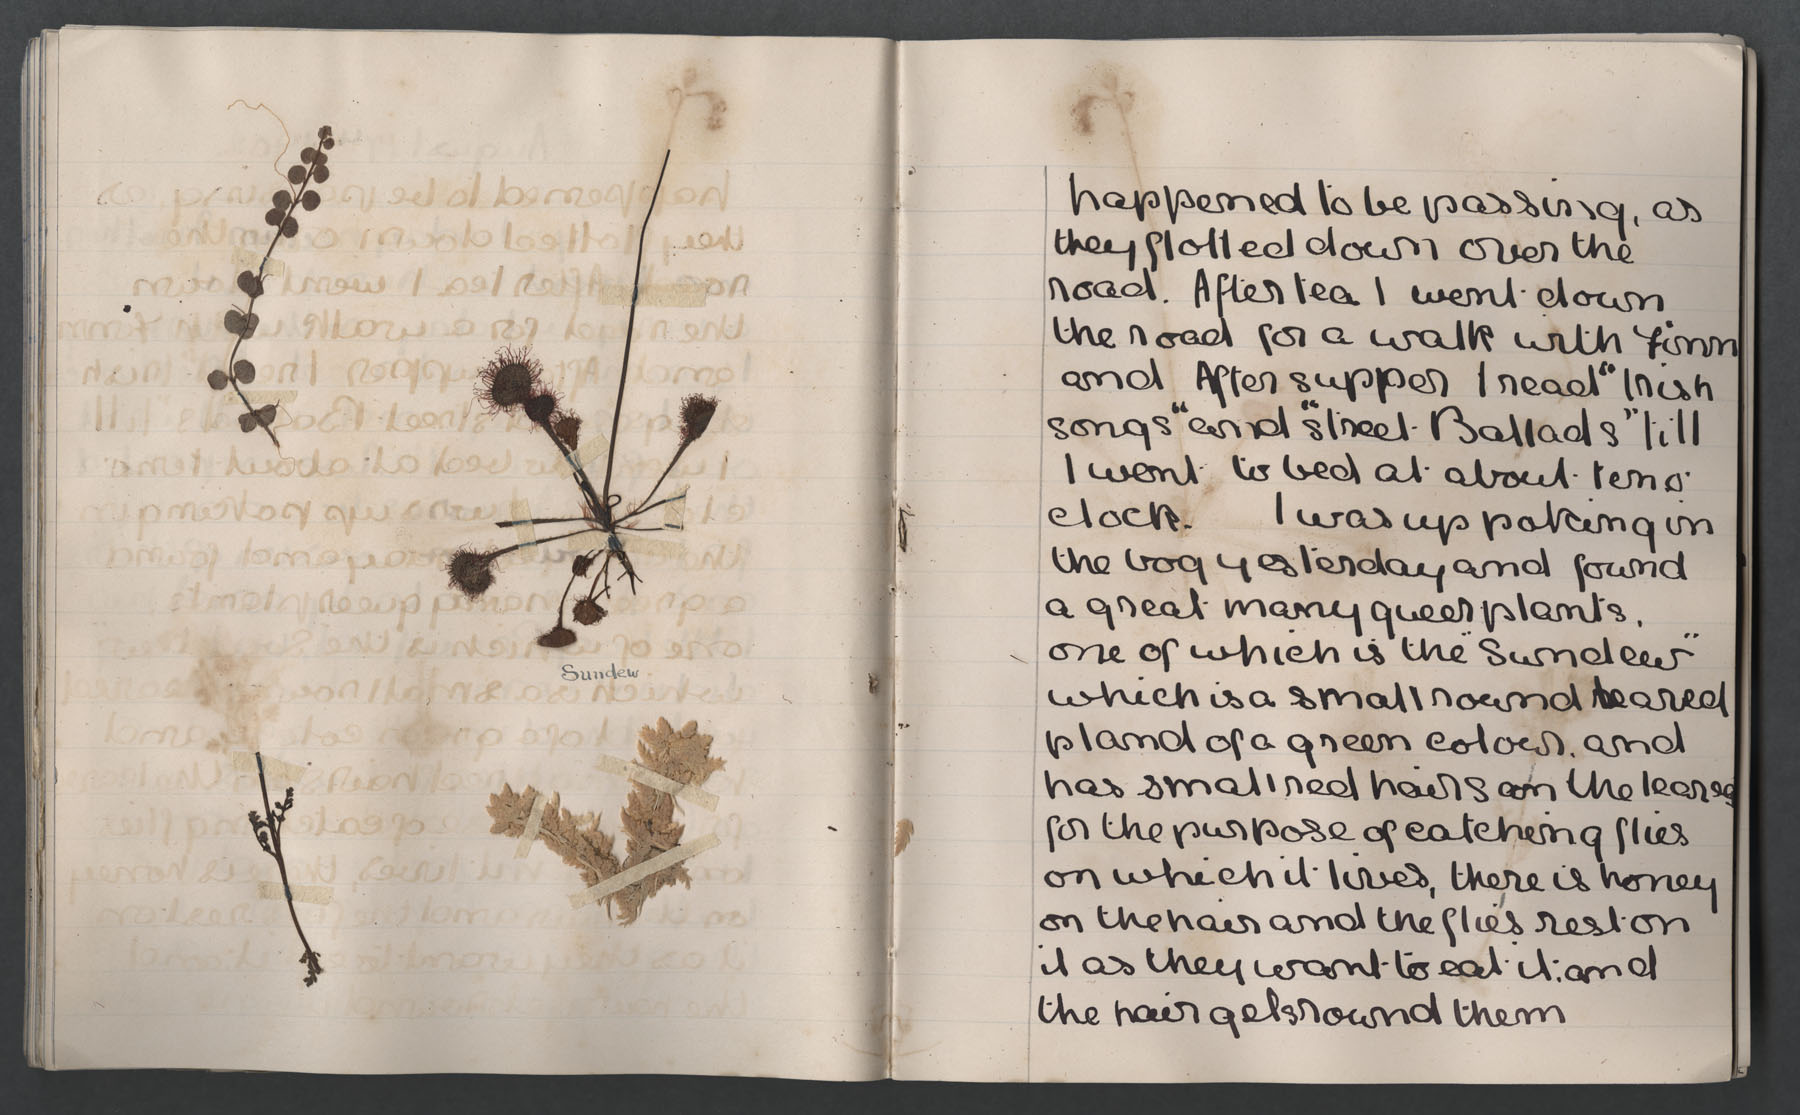 Sundew
happened to be passing, as
they flotted down over the
road. After tea I went down
the road for a walk with Finn
and After supper I read "Irish
songs" and "street Ballads" till
I went to bed at about ten o'
clock. I was up poking in
the bog yesterday and found
a great many queer plants,
one of which is the "Sundew"
which is a small round leaved
pland of a green colour. and
has small red hairs on the leaves
for the purpose of catching flies
on which it lives, there is honey
on the hair and the flies rest on
it as they want to eat it: and
the hair gets round them